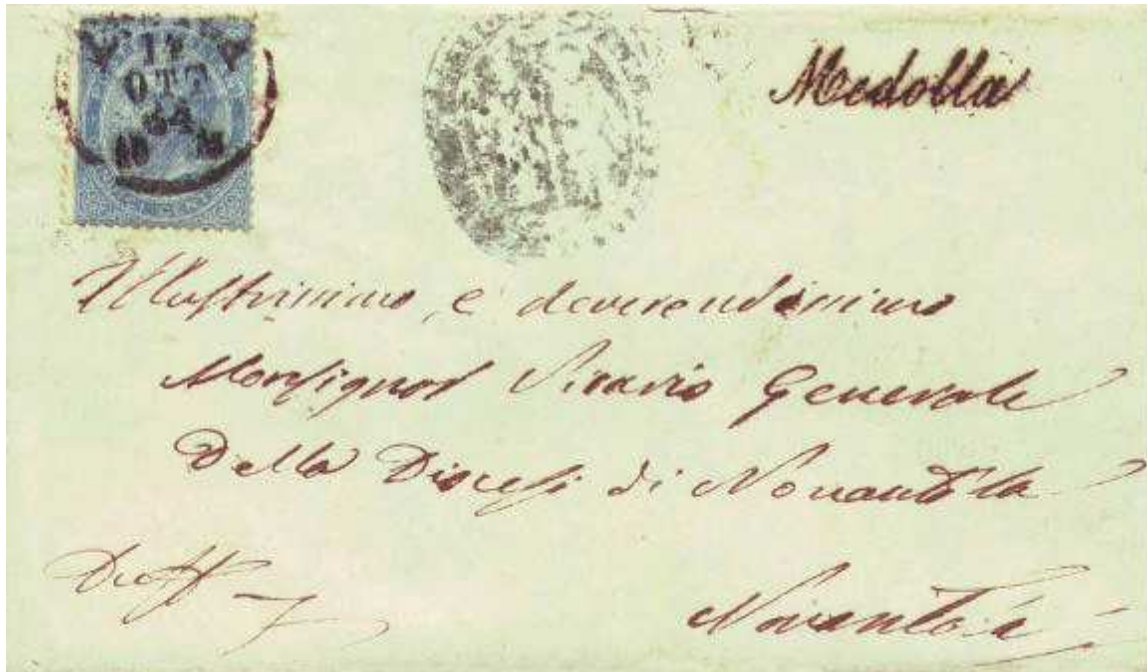 17
OTT
64
Medolla
Illustrissimo, e Reverendissimo
Monsignor Vicario Generale
Della Diocesi di Nonantola
Nonantola